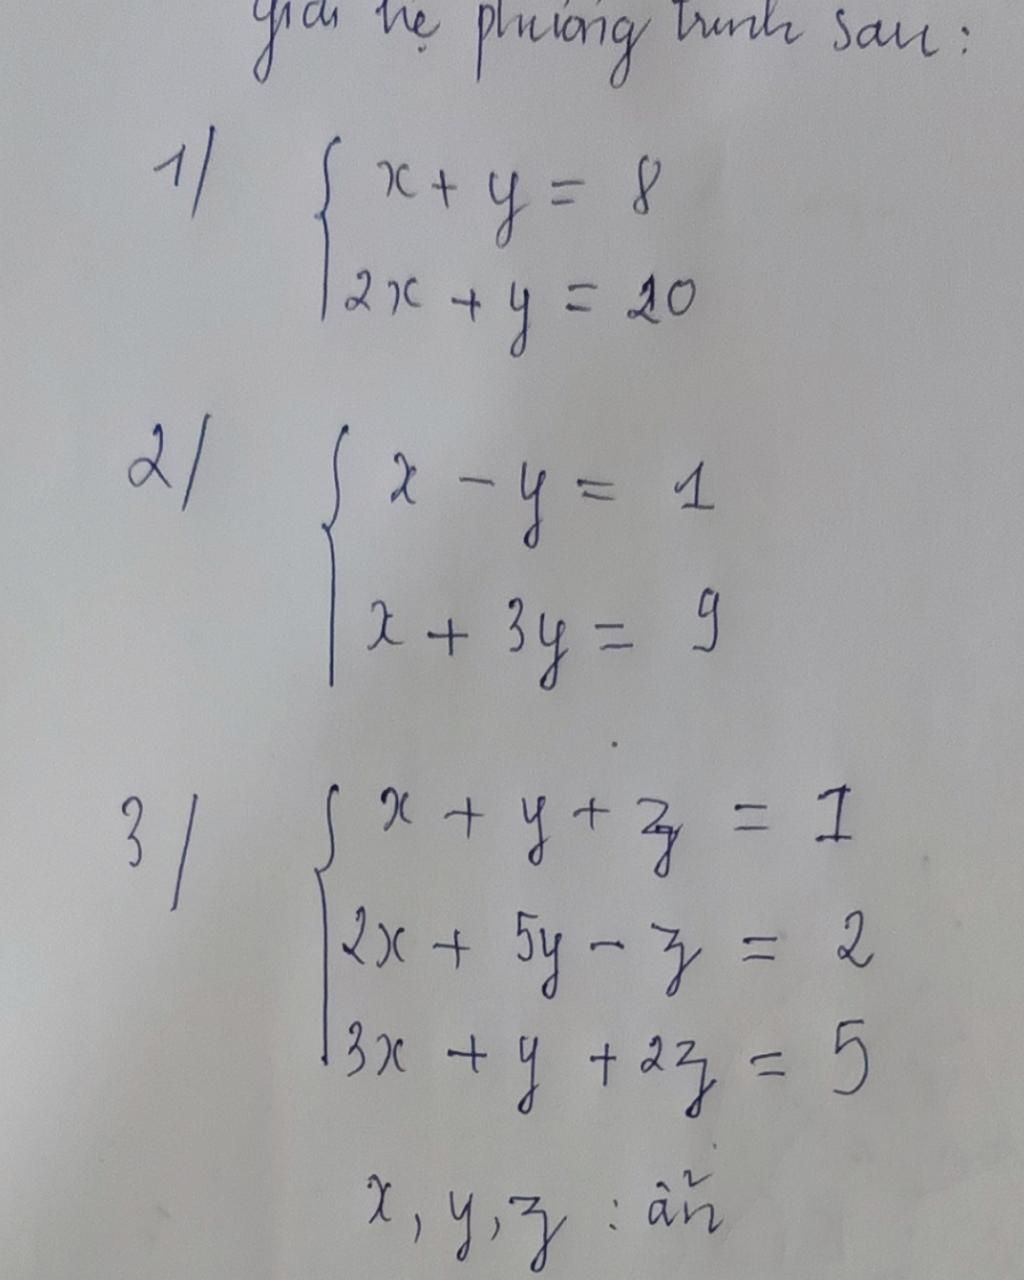 giải hệ phương trình sau:
1/ { x + y = 8
2x + y = 20
2/ { x - y = 1
x + 3y = 9
3/ { x + y + z = 1
2x + 5y - z = 2
3x + y + 2z = 5
x, y, z : ẩn